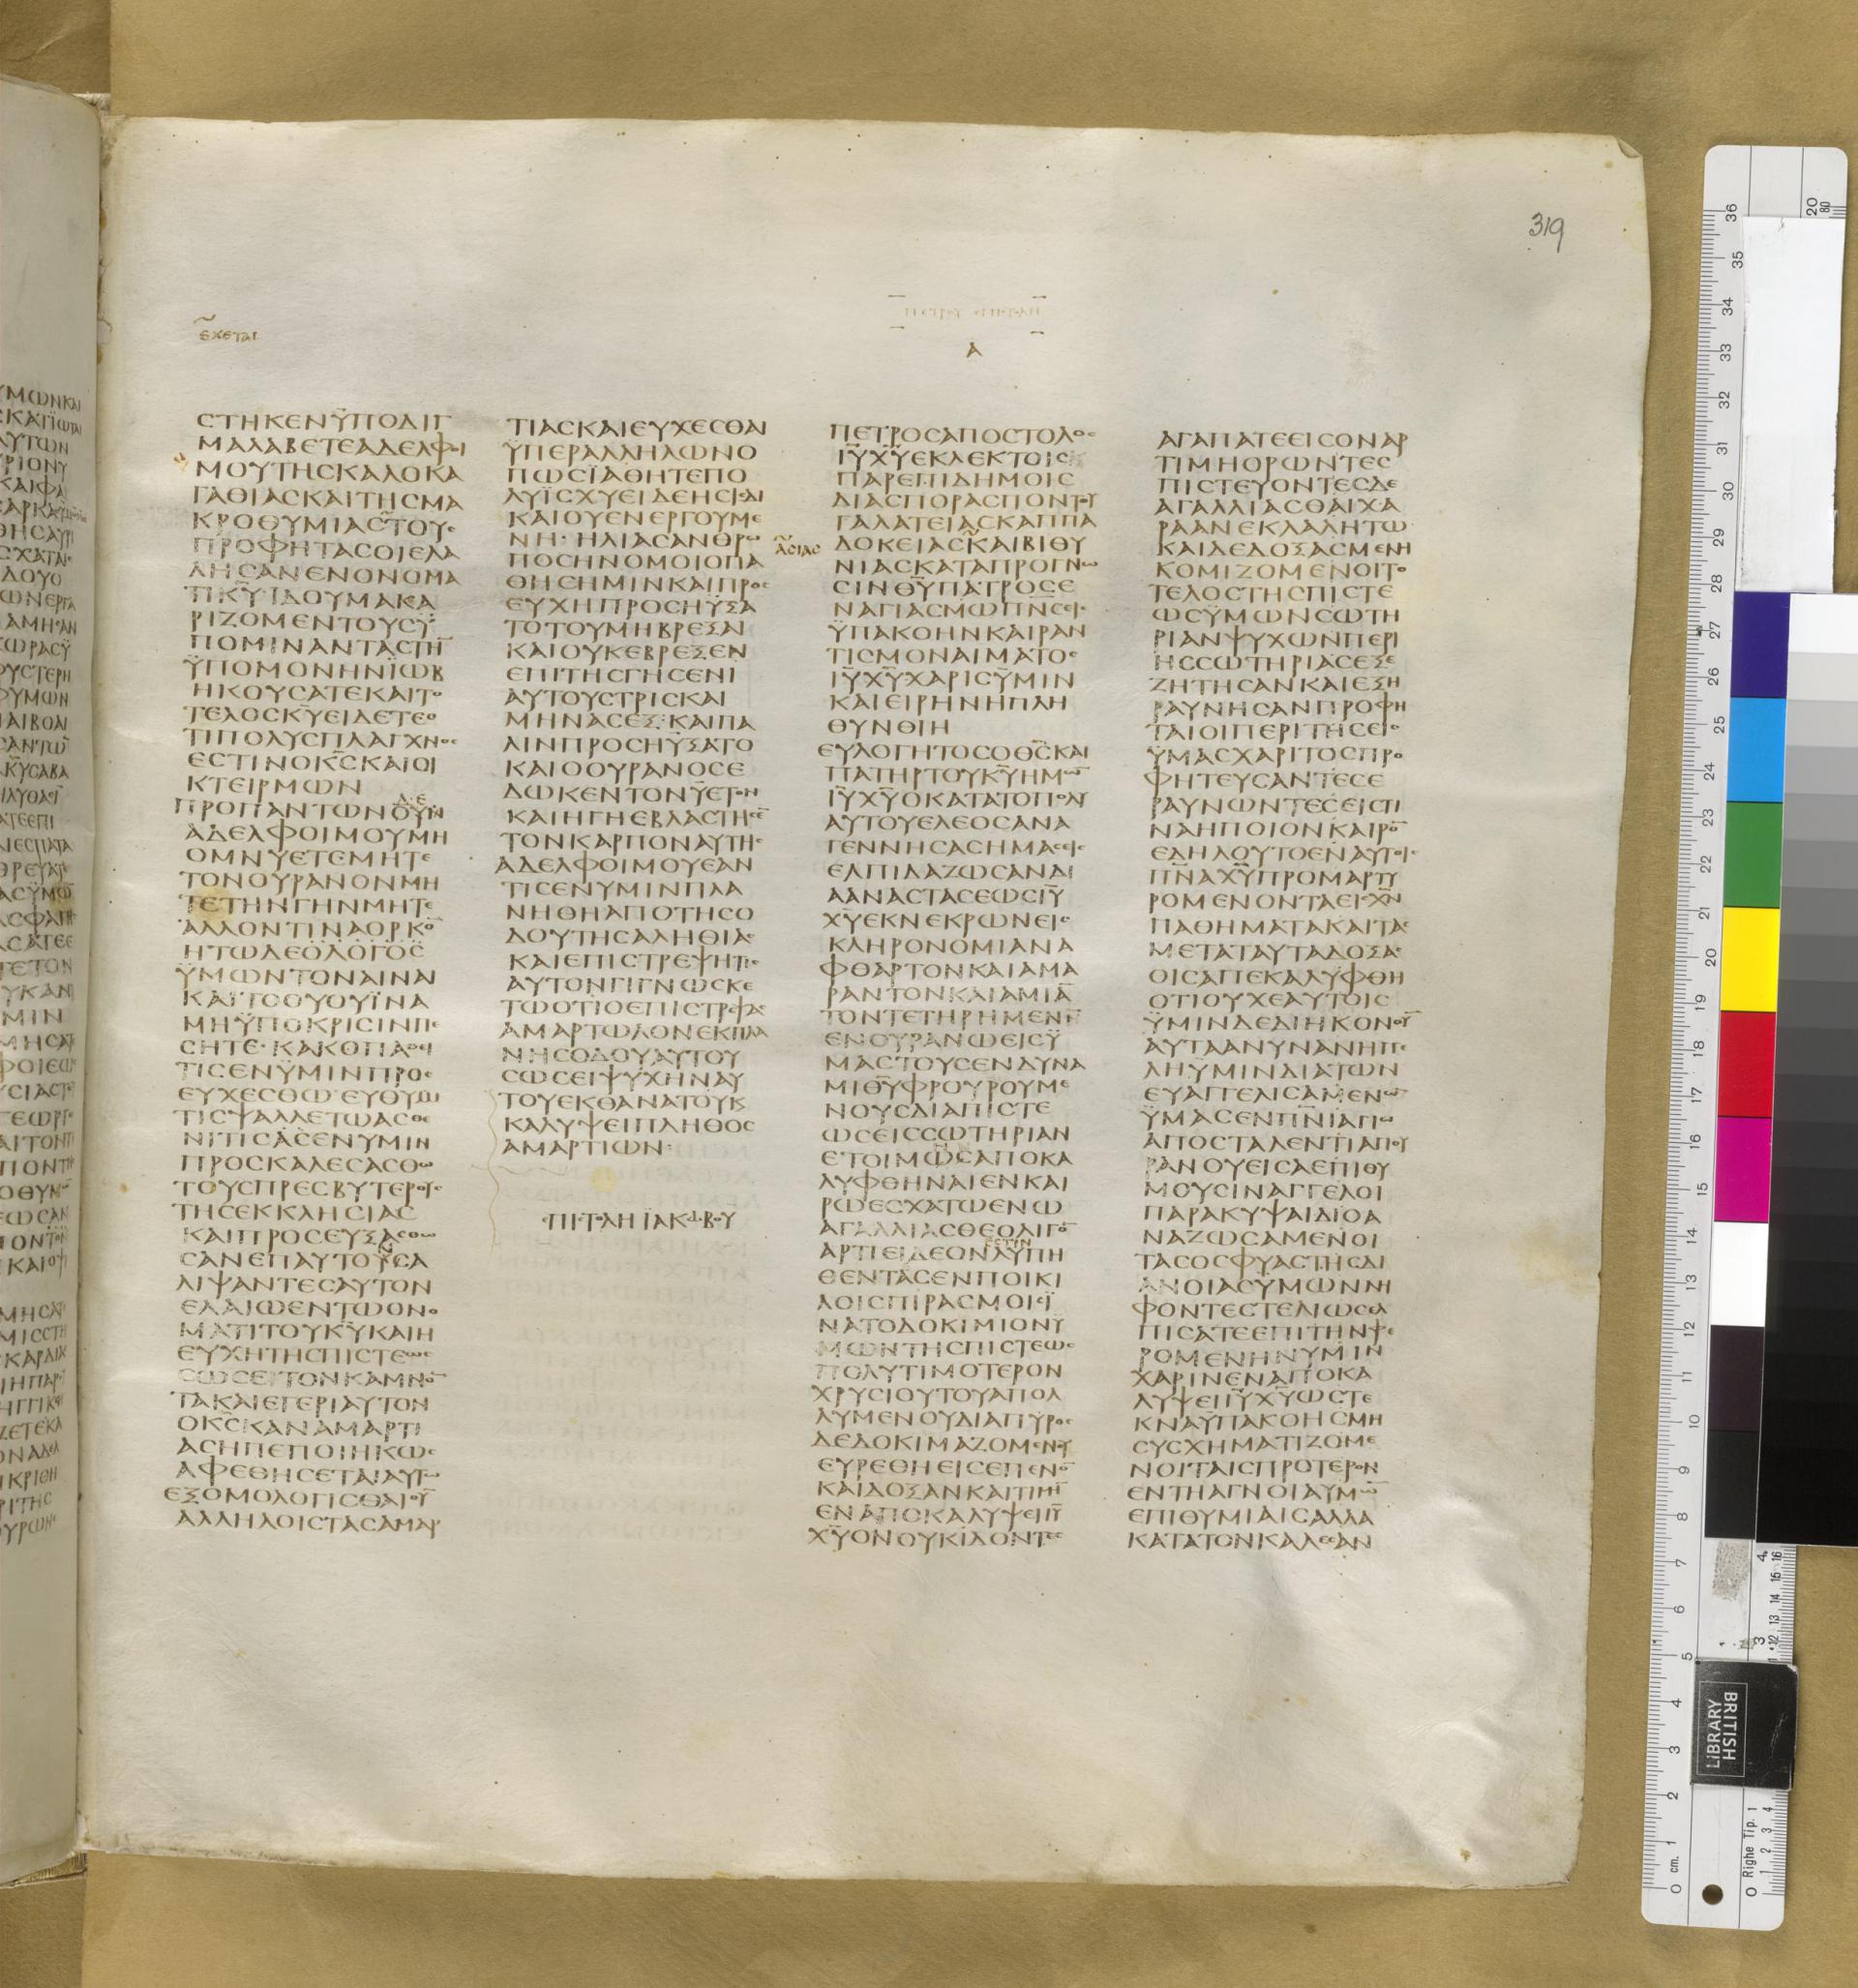 319
ΠΕΤΡΟΥ ΕΠΙΣΤΟΛΗ
Α
ΕΧΕΤΑΙ
ϹΤΗΚΕΝΫΠΟΔΙΓ
ΜΑΛΑΒΕΤΕΑΔΕΛΦΟΙ
ΜΟΥΤΗϹΚΑΛΟΚΑ
ΓΑΘΙΑϹΚΑΙΤΗϹΜΑ
ΚΡΟΘΥΜΙΑϹΤΟΥϹ
ΠΡΟΦΗΤΑϹΟΙΕΛΑ
ΛΗϹΑΝΕΝΟΝΟΜΑ
ΤΙΚ̅Υ̅ΙΔΟΥΜΑΚΑ
ΡΙΖΟΜΕΝΤΟΥϹΫ
ΠΟΜΙΝΑΝΤΑϹΤΗ̅
ΫΠΟΜΟΝΗΝΪΩΒ
ΗΚΟΥϹΑΤΕΚΑΙΤΟ
ΤΕΛΟϹΚ̅Υ̅ΕΙΔΕΤΕΟ
ΤΙΠΟΛΥϹΠΛΑΓΧΝΟϹ
ΕϹΤΙΝΟΚ̅Ϲ̅ΚΑΙΟΙ
ΚΤΕΙΡΜΩΝ
ΠΡΟΠΑΝΤΩΝΟΥΝ
ΔΕ
ΑΔΕΛΦΟΙΜΟΥΜΗ
ΟΜΝΥΕΤΕΜΗΤΕ
ΤΟΝΟΥΡΑΝΟΝΜΗ
ΤΕΤΗΝΓΗΝΜΗΤΕ
ΑΛΛΟΝΤΙΝΑΟΡΚΟ̅
ΗΤΩΔΕΟΛΟΓΟϹ
ΫΜΩΝΤΟΝΑΙΝΑΙ
ΚΑΙΤΟΟΥΟΥΪΝΑ
ΜΗΫΠΟΚΡΙϹΙΝΠΕ
ϹΗΤΕ·ΚΑΚΟΠΑΘΕΙ
ΤΙϹΕΝΫΜΙΝΠΡΟϹ
ΕΥΧΕϹΘΩ·ΕΥΘΥΜΙ
ΤΙϹΨΑΛΛΕΤΩΑϹΘΕ
ΝΙΤΙϹΑϹΕΝΥΜΙΝ
ΠΡΟϹΚΑΛΕϹΑϹΘΩ
ΤΟΥϹΠΡΕϹΒΥΤΕΡΟΥϹ
ΤΗϹΕΚΚΛΗϹΙΑϹ
ΚΑΙΠΡΟϹΕΥΞΑϹΘΩ
ϹΑΝΕΠΑΥΤΟΥϹΑ
Ν
ΛΙΨΑΝΤΕϹΑΥΤΟΝ
ΕΛΑΙΩΕΝΤΩΟΝΟ
ΜΑΤΙΤΟΥΚ̅Υ̅ΚΑΙΗ
ΕΥΧΗΤΗϹΠΙϹΤΕΩϹ
ϹΩϹΕΙΤΟΝΚΑΜΝΟ̅
ΤΑΚΑΙΕΓΕΡΙΑΥΤΟΝ
ΟΚ̅Ϲ̅ΚΑΝΑΜΑΡΤΙ
ΑϹΗΠΕΠΟΙΗΚΩϹ
ΑΦΕΘΗϹΕΤΑΙΑΥΤΩ
ΕΞΟΜΟΛΟΓΙϹΘΑΙΟΥ̅
ΑΛΛΗΛΟΙϹΤΑϹΑΜΑΡ
ΤΙΑϹΚΑΙΕΥΧΕϹΘΑΙ
ΫΠΕΡΑΛΛΗΛΩΝΟ
ΠΩϹΪΑΘΗΤΕΠΟ
ΛΥΪϹΧΥΕΙΔΕΗϹΙϹΔΙ
ΚΑΙΟΥΕΝΕΡΓΟΥΜΕ
ΝΗ·ΗΛΙΑϹΑΝΘΡΩ
ΠΟϹΗΝΟΜΟΙΟΠΑ
ΘΗϹΗΜΙΝΚΑΙΠΡΟϹ
ΕΥΧΗΠΡΟϹΗΫΞΑ
ΤΟΤΟΥΜΗΒΡΕΞΑΙ
ΚΑΙΟΥΚΕΒΡΕΞΕΝ
ΕΠΙΤΗϹΓΗϹΕΝΙ
ΑΥΤΟΥϹΤΡΙϹΚΑΙ
ΜΗΝΑϹΕΞ·ΚΑΙΠΑ
ΛΙΝΠΡΟϹΗΫΞΑΤΟ
ΚΑΙΟΟΥΡΑΝΟϹΕ
ΔΩΚΕΝΤΟΝΫΕΤΟΝ
ΚΑΙΗΓΗΕΒΛΑϹΤΗϹΕ̅
ΤΟΝΚΑΡΠΟΝΑΥΤΗϹ
ΑΔΕΛΦΟΙΜΟΥΕΑΝ
ΤΙϹΕΝΥΜΙΝΠΛΑ
ΝΗΘΗΑΠΟΤΗϹΟ
ΔΟΥΤΗϹΑΛΗΘΙΑϹ
ΚΑΙΕΠΙϹΤΡΕΨΗΤΙϹ
ΑΥΤΟΝΓΙΓΝΩϹΚΕ
ΤΩΟΤΙΟΕΠΙϹΤΡΕΨΑϹ
ΑΜΑΡΤΩΛΟΝΕΚΠΛΑ
ΝΗϹΟΔΟΥΑΥΤΟΥ
ϹΩϹΕΙΨΥΧΗΝΑΥ
ΤΟΥΕΚΘΑΝΑΤΟΥΚ
ΚΑΛΥΨΕΙΠΛΗΘΟϹ
ΑΜΑΡΤΙΩΝ·
ΕΠΙϹΤΟΛΗ ΪΑΚΩΒΟΥ
ΠΕΤΡΟϹΑΠΟϹΤΟΛΟϹ
Ι̅Υ̅Χ̅Υ̅ΕΚΛΕΚΤΟΙϹ
ΠΑΡΕΠΙΔΗΜΟΙϹ
ΔΙΑϹΠΟΡΑϹΠΟΝΤΟΥ
ΓΑΛΑΤΕΙΑϹΚΑΠΠΑ
ΑϹΙΑϹ
ΔΟΚΕΙΑϹΚΑΙΒΙΘΥ
ΝΙΑϹΚΑΤΑΠΡΟΓΝΩ
ϹΙΝΘ̅Υ̅ΠΑΤΡΟϹΕ
ΝΑΓΙΑϹΜΩΠ̅Ν̅Ϲ̅ΕΙϹ
ΫΠΑΚΟΗΝΚΑΙΡΑΝ
ΤΙϹΜΟΝΑΙΜΑΤΟϹ
Ι̅Υ̅Χ̅Υ̅ΧΑΡΙϹΫΜΙΝ
ΚΑΙΕΙΡΗΝΗΠΛΗ
ΘΥΝΘΙΗ
ΕΥΛΟΓΗΤΟϹΟΘ̅Ϲ̅ΚΑΙ
ΠΑΤΗΡΤΟΥΚ̅Υ̅ΗΜΩ̅
Ι̅Υ̅Χ̅Υ̅ΟΚΑΤΑΤΟΠΟΛΥ
ΑΥΤΟΥΕΛΕΟϹΑΝΑ
ΓΕΝΝΗϹΑϹΗΜΑϹΕΙϹ
ΕΛΠΙΔΑΖΩϹΑΝΔΙ
ΑΑΝΑϹΤΑϹΕΩϹΙ̅Υ̅
Χ̅Υ̅ΕΚΝΕΚΡΩΝΕΙϹ
ΚΛΗΡΟΝΟΜΙΑΝΑ
ΦΘΑΡΤΟΝΚΑΙΑΜΑ
ΡΑΝΤΟΝΚΑΙΑΜΙΑ̅
ΤΟΝΤΕΤΗΡΗΜΕΝΗ̅
ΕΝΟΥΡΑΝΩΕΙϹΫ
ΜΑϹΤΟΥϹΕΝΔΥΝΑ
ΜΙΘ̅Υ̅ΦΡΟΥΡΟΥΜΕ
ΝΟΥϹΔΙΑΠΙϹΤΕ
ΩϹΕΙϹϹΩΤΗΡΙΑΝ
ΕΤΟΙΜΩϹΑΠΟΚΑ
ΛΥΦΘΗΝΑΙΕΝΚΑΙ
ΡΩΕϹΧΑΤΩΕΝΩ
ΑΓΑΛΛΙΑϹΘΕΟΛΙΓΟ̅
ΑΡΤΙΕΙΔΕΟΝΛΥΠΗ
ΕϹΤΙΝ
ΘΕΝΤΑϹΕΝΠΟΙΚΙ
ΛΟΙϹΠΙΡΑϹΜΟΙϹΪ
ΝΑΤΟΔΟΚΙΜΙΟΝΥ
ΜΩΝΤΗϹΠΙϹΤΕΩϹ
ΠΟΛΥΤΙΜΟΤΕΡΟΝ
ΧΡΥϹΙΟΥΤΟΥΑΠΟΛ
ΛΥΜΕΝΟΥΔΙΑΠΥΡΟϹ
ΔΕΔΟΚΙΜΑΖΟΜΕΝΟΥ
ΕΥΡΕΘΗΕΙϹΕΠΕΝΟ̅
ΚΑΙΔΟΞΑΝΚΑΙΤΙΜΗ̅
ΕΝΑΠΟΚΑΛΥΨΕΙΙ̅Υ̅
Χ̅Υ̅ΟΝΟΥΚΙΔΟΝΤΕϹ
ΑΓΑΠΑΤΕΕΙϹΟΝΑΡ
ΤΙΜΗΟΡΩΝΤΕϹ
ΠΙϹΤΕΥΟΝΤΕϹΔΕ
ΑΓΑΛΛΙΑϹΘΑΙΧΑ
ΡΑΑΝΕΚΛΑΛΗΤΩ
ΚΑΙΔΕΔΟΞΑϹΜΕΝΗ
ΚΟΜΙΖΟΜΕΝΟΙΤΟ
ΤΕΛΟϹΤΗϹΠΙϹΤΕ
ΩϹΫΜΩΝϹΩΤΗ
ΡΙΑΝΨΥΧΩΝΠΕΡΙ
ΗϹϹΩΤΗΡΙΑϹΕΞΕ
ΖΗΤΗϹΑΝΚΑΙΕΞΗ
ΡΑΥΝΗϹΑΝΠΡΟΦΗ
ΤΑΙΟΙΠΕΡΙΤΗϹΕΙϹ
ΫΜΑϹΧΑΡΙΤΟϹΠΡΟ
ΦΗΤΕΥϹΑΝΤΕϹΕ
ΡΑΥΝΩΝΤΕϹΕΙϹΤΙ
ΝΑΗΠΟΙΟΝΚΑΙΡΟ̅
ΕΔΗΛΟΥΤΟΕΝΑΥΤΟΙϹ
Π̅Ν̅ΑΧ̅Υ̅ΠΡΟΜΑΡΤΥ
ΡΟΜΕΝΟΝΤΑΕΙϹΧ̅Ν̅
ΠΑΘΗΜΑΤΑΚΑΙΤΑϹ
ΜΕΤΑΤΑΥΤΑΔΟΞΑϹ
ΟΙϹΑΠΕΚΑΛΥΦΘΗ
ΟΤΙΟΥΧΕΑΥΤΟΙϹ
ΫΜΙΝΔΕΔΙΗΚΟΝΟΥ̅
ΑΥΤΑΑΝΥΝΑΝΗΓΓΕ
ΛΗΫΜΙΝΔΙΑΤΩΝ
ΕΥΑΓΓΕΛΙϹΑΜΕΝΩ̅
ΫΜΑϹΕΝΠ̅Ν̅ΙΑΓΙΩ
ΑΠΟϹΤΑΛΕΝΤΙΑΠΟΥ
ΡΑΝΟΥΕΙϹΑΕΠΙΘΥ
ΜΟΥϹΙΝΑΓΓΕΛΟΙ
ΠΑΡΑΚΥΨΑΙΔΙΟΑ
ΝΑΖΩϹΑΜΕΝΟΙ
ΤΑϹΟϹΦΥΑϹΤΗϹΔΙ
ΑΝΟΙΑϹΫΜΩΝΝΗ
ΦΟΝΤΕϹΤΕΛΙΩϹΕΛ
ΠΙϹΑΤΕΕΠΙΤΗΝΦΕ
ΡΟΜΕΝΗΝΥΜΙΝ
ΧΑΡΙΝΕΝΑΠΟΚΑ
ΛΥΨΕΙΙ̅Υ̅Χ̅Υ̅ΩϹΤΕ
ΚΝΑΫΠΑΚΟΗϹΜΗ
ϹΥϹΧΗΜΑΤΙΖΟΜΕ
ΝΟΙΤΑΙϹΠΡΟΤΕΡΟΝ
ΕΝΤΗΑΓΝΟΙΑΥΜΩ̅
ΕΠΙΘΥΜΙΑΙϹΑΛΛΑ
ΚΑΤΑΤΟΝΚΑΛΕϹΑΝ
BRITISH LIBRARY
0 cm. 1 2 3 4 5 6 7 8 9 10 11 12 13 14 15 16 17 18 19 20 21 22 23 24 25 26 27 28 29 30 31 32 33 34 35 36
0 Righe Tip. 1 2 3 4